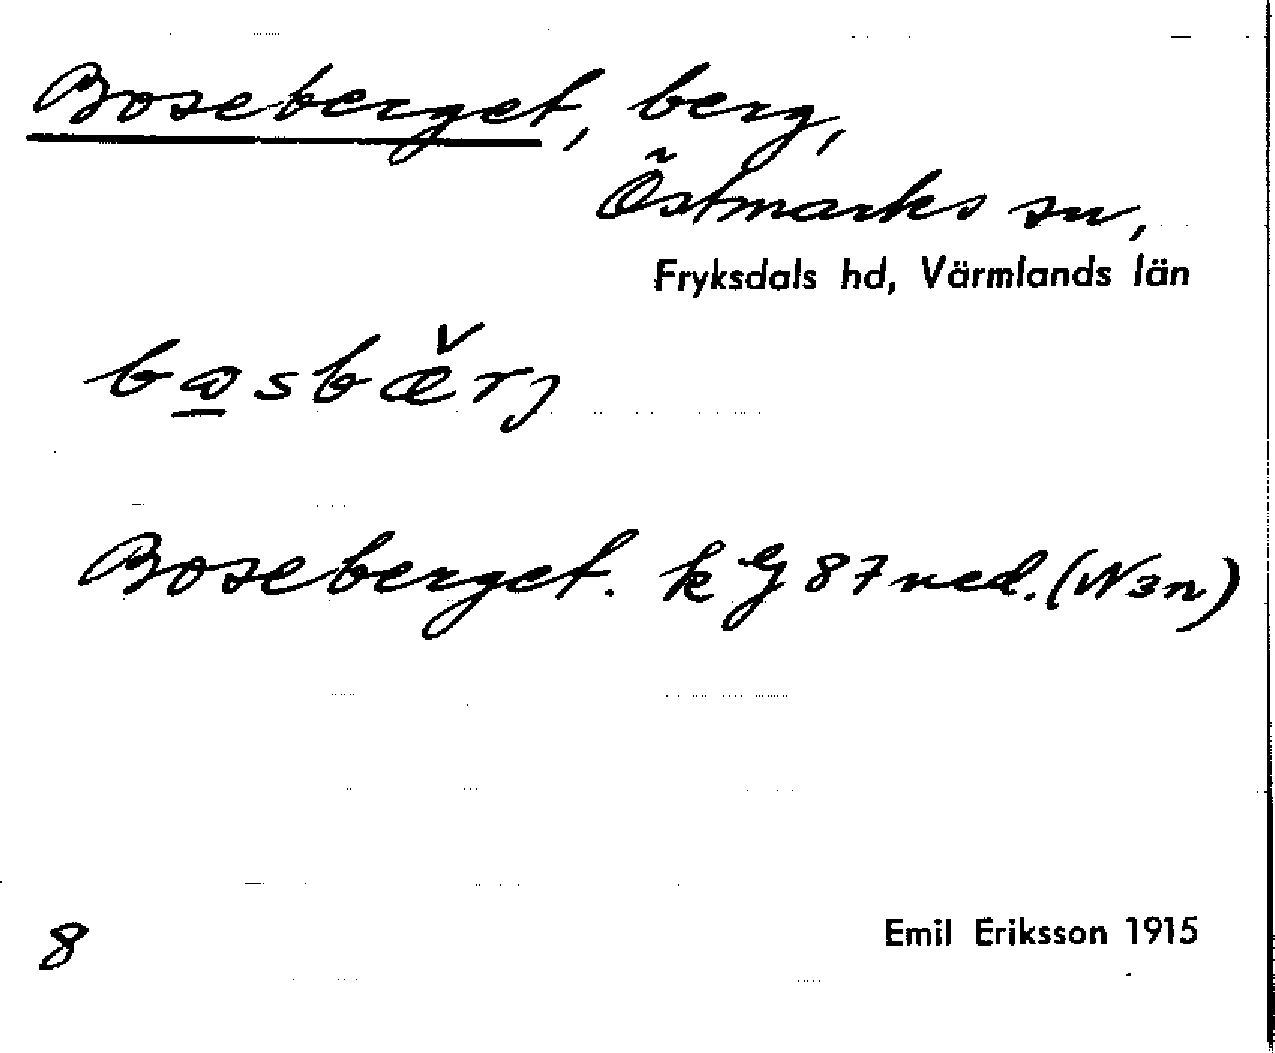 Boseberget, berg,
Östmarks sn,
Fryksdals hd, Värmlands län
Boseberget. k G 87 ned. (Wsn)
8
Emil Eriksson 1915